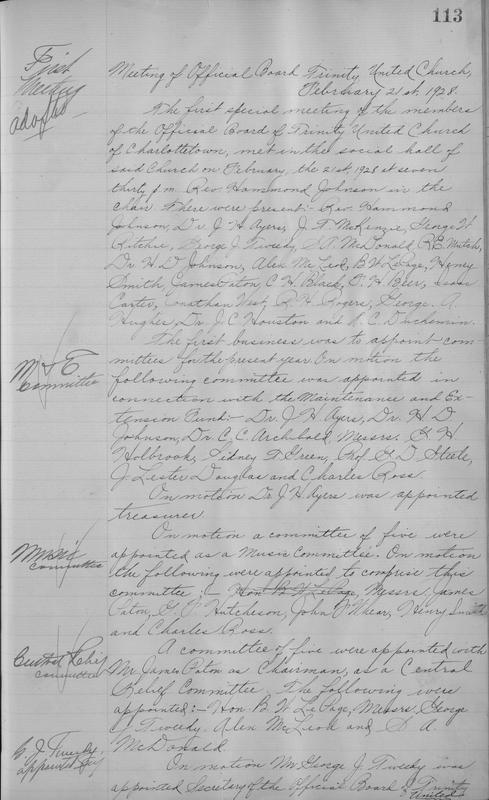 113
First
Meeting
adopted
Meeting of Official Board Trinity United Church,
February 21st, 1928.
The first special meeting of the members
of the Official Board of Trinity United Church
of Charlottetown, met in the social hall of
said Church on February, the 21st, 1928 at seven
thirty p.m. Rev Hammond Johnson in the
chair. There were present:- Rev. Hammond
Johnson, Dr. J. H. Ayers, J. F. McKenzie, George W
Ritchie, George J. Tweedy, S. A. McDonald, R.B. Mutch,
Dr. H. D. Johnson, Alex McLeod, B. W. LePage, Henry
Smith, James Paton, C. H. Black, F. H. Beer, Isaac
Carter, Jonathan West, R. H. Rogers, George. A.
Hughes, Dr. J. C. Houston and A. C. Duchemin.
The first business was to appoint com-
mittees for the present year. On motion the
M & E
Committee
following committee was appointed in
connection with the Maintenance and Ex-
tension Fund:- Dr. J. H. Ayers, Dr. H. D.
Johnson, Dr. C. C. Archibald, Messrs. H
Holbrook, Sidney T. Green, Prof. G. D. Steele,
J. Lester Douglas and Charles Ross.
On motion Dr. J. H. Ayers was appointed
treasurer.
On motion a committee of five were
Music
Committee
appointed as a Music Committee. On motion
the following were appointed to comprise this
committee:- Hon. B. W. LePage, Messrs. James
Paton, Hutcheson, John O'Mhear, Henry Smith
and Charles Ross.
Central Relief
Committee
A committee of five were appointed with
Mr. James Paton as Chairman, as a Central
Relief Committee. The following were
appointed:- Hon. B. W. LePage, Messrs. George
J Tweedy, Alex McLeod and S. A.
McDonald.
G. J. Tweedy
appointed Secy
On motion Mr George J. Tweedy was
appointed Secretary of the Official Board of Trinity
United